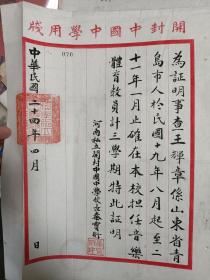 開封中國中學用牋
為証明事查王輝章係山東省青
島市人於民國十九年八月起至二
十一年一月止確在本校担任音樂
體育教員計三學期特此証明
河南私立開封中國中學校長秦
中華民國二十四年四月 日
070